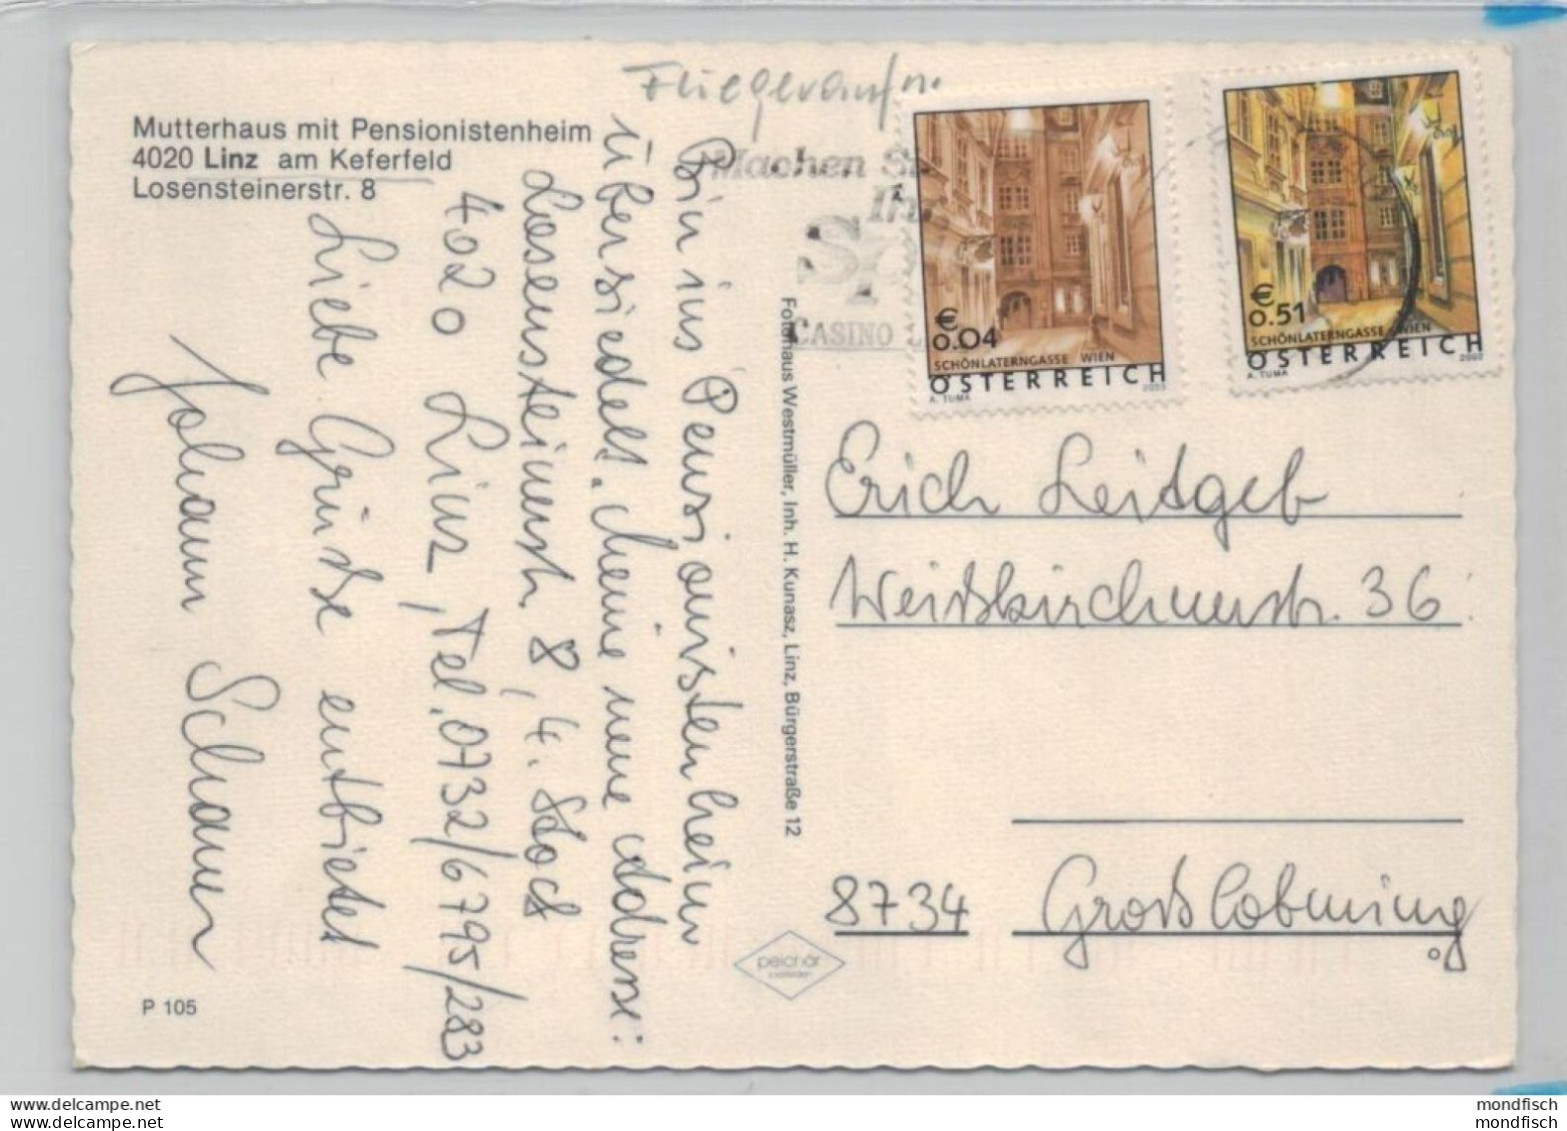 Fliegeraufn.
Mutterhaus mit Pensionistenheim
4020 Linz am Keferfeld
Losensteinerstr. 8
Bin ins Pensionistenheim
übersiedelt. Meine neue Adresse:
Losensteinerstr. 8, 4. Stock
4020 Linz, Tel. 0732/6795/283
Liebe Grüße entbietet
Johann
P 105
Fotohaus Westmüller, Inh. H. Kunasz, Linz, Bürgerstraße 12
Machen S
CASINO L
€
0.04
SCHÖNLATERNGASSE WIEN
ÖSTERREICH
A. TUMA 2003
€
0.51
SCHÖNLATERNGASSE WIEN
ÖSTERREICH
A. TUMA 2002
Erich Leitgeb
Weißkirchnerstr. 36
8734 Großlobming
mondfisch
mondfisch